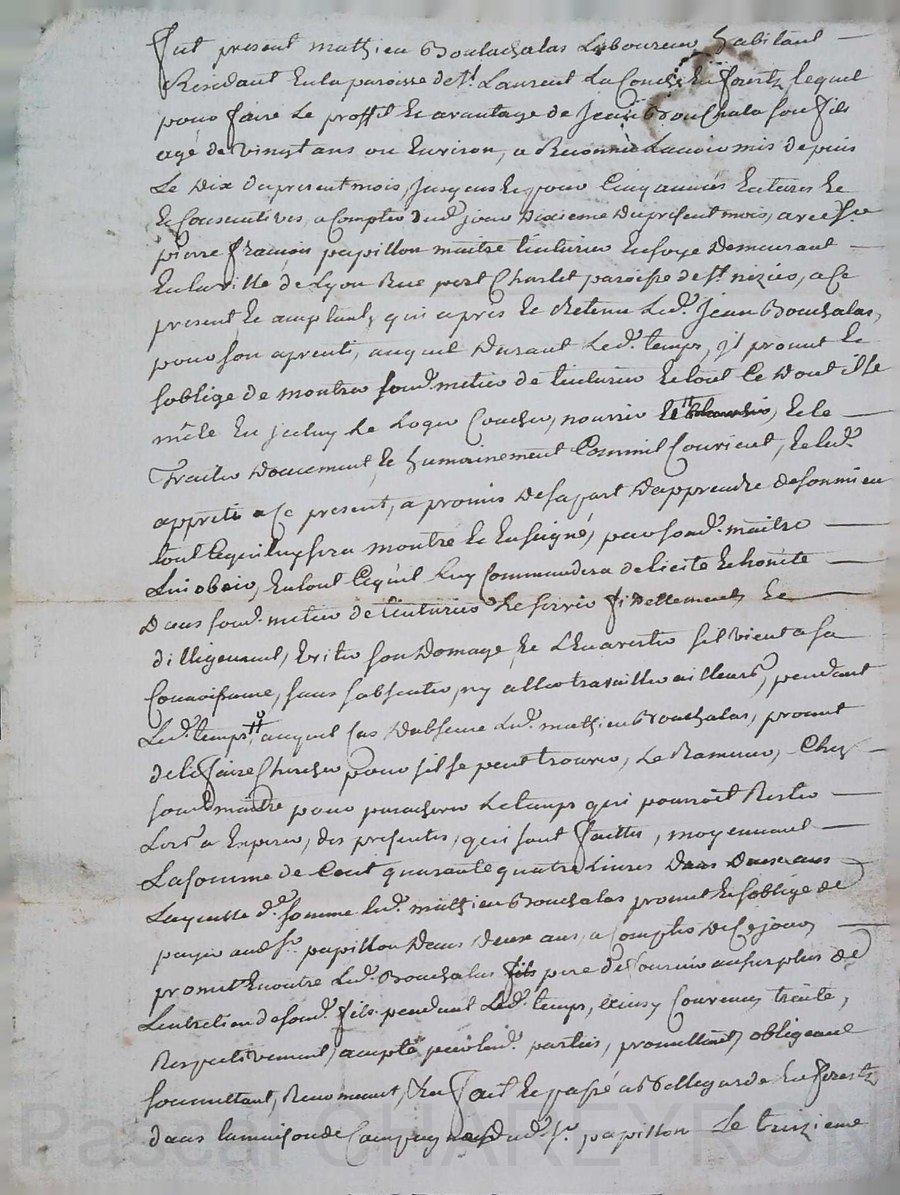 Fut present mathieu Bouchalas Laboureur habitant
Residant En la paroisse de St. Laurent La Conche En forestz lequel
pour faire Le proffit Et avantage de Jean Bouchala son fils
agé de vingt ans ou Environ, a Reconnu Lavoir mis depuis
Le Dix du present mois, Jusques Et pour Cinq années Entieres Et
Et Consecutives, a Compter dud. jour Dixieme Du present mois, avec Sr.
pierre francois papillon maitre tinturier En soye Demeurant
En la ville de Lyon Rue port Charlet paroisse de St. nizier, a Ce
present Et acceptant, qui a pris Et Retenu Led. Jean Bouchalas,
pour son aprenti, auquel Durant Led. temps, jl promet Et
soblige de montrer sond. metier de tinturier Et tout Ce Dont il se
mêle En jceluy Le Loger Coucher, nourrir Et blanchir, Et le
Traiter Doucement Et humainement Comm'il Convient, Et led.
appreti a Ce present, a promis De sa part D'apprendre de son mieu
tout Ce qui luy sera montré Et Enseigné, par sond. maitre
Lui obeir, En tout Ce qu'il Luy Commandera de licite Et honête
Dans sond. metier de tinturier Le servir fidellement Et
dilligemment, Eviter son Domage, Et L'En avertir s'il vient a sa
Connoissance, sans s'absenter, ny aller travailler ailleurs, pendant
Led. temps, auquel Cas D'absence Led. mathieu Bouchalas, promet
de le faire Chercher pour s'il se peut trouver, Le Ramener, Chez
sond. maitre pour parachever Le temps qui pourroit Rester
Lors a Expirer, des presentes, qui sont faittes, moyennant
La somme de Cent quarante quatre Livres Dans Deux ans
Laquelle de. somme Led. mathieu Bouchalas promet Et soblige de
payer aud. Sr. papillon Dans Deux ans, a Compter de Ce jour
promet En outre Led. Bouchalas fils pere de fournir au surplus de
Lentretien de sond. fils pendant Led. temps, Ainsy Convenu, traité,
Respectivement, accepté par Lesd. parties, promettant, obligeant
soumettant, Renoncant, &a fait Et passé a Bellegarde En forestz
dans la maison de Campagne dud. Sr. papillon Le treizieme
Pascal CHAREYRON